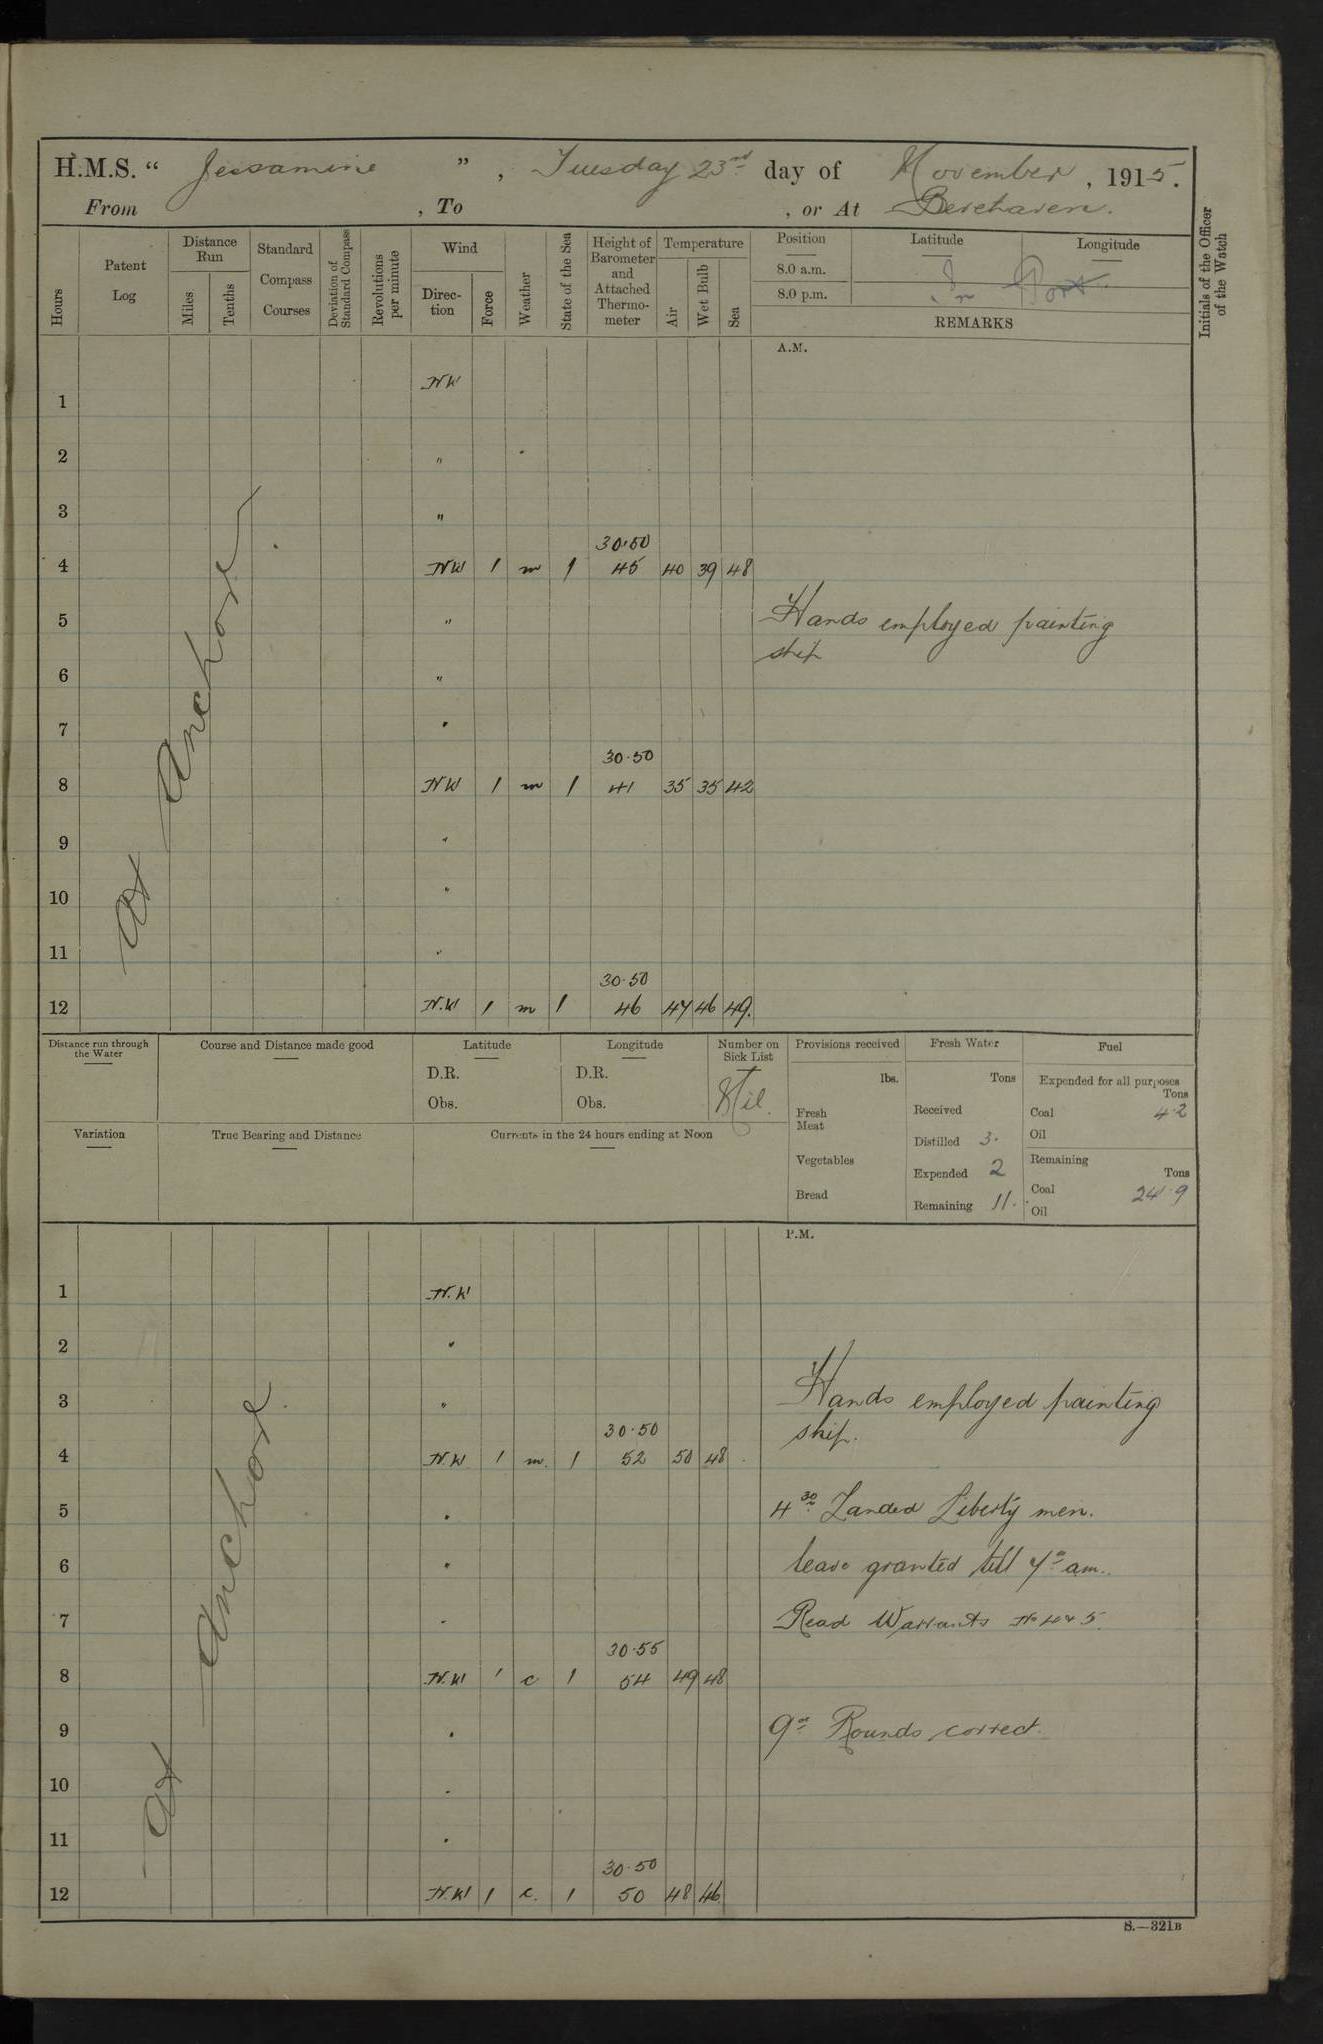 H.M.S. “ Jessamine ”, Tuesday 23rd day of November, 1915.
From , To , or At Berehaven.
Hours
Patent Log
Distance Run
Miles
Tenths
Standard Compass Courses
Deviation of Standard Compass
Revolutions per minute
Wind
Direction
Force
Weather
State of the Sea
Height of Barometer and Attached Thermometer
Temperature
Air
Wet Bulb
Sea
Position
8.0 a.m.
8.0 p.m.
Latitude
Longitude
In Port.
REMARKS
Initials of the Officer of the Watch
A.M.
At Anchor
1 NW
2 "
3 "
30.50
4 NW 1 m 1 45 40 39 48
5 " Hands employed painting
ship
6 "
7 "
30.50
8 NW 1 m 1 41 35 35 42
9 "
10 "
11 "
30.50
12 N.W 1 m 1 46 47 46 49.
Distance run through the Water
Course and Distance made good
Latitude
D.R.
Obs.
Longitude
D.R.
Obs.
Number on Sick List
Nil.
Provisions received
lbs.
Fresh Meat
Vegetables
Bread
Fresh Water
Tons
Received
Distilled 3.
Expended 2
Remaining 11.
Fuel
Expended for all purposes
Tons
Coal 4.2
Oil
Remaining
Tons
Coal 24.9
Oil
Variation
True Bearing and Distance
Currents in the 24 hours ending at Noon
P.M.
At Anchor.
1 N.W
2 "
3 " Hands employed painting
ship.
30.50
4 N.W 1 m. 1 52 50 48
5 " 4 30 Landed Liberty men.
6 " leave granted till 7 am.
7 " Read Warrants No 4 & 5.
30.55
8 N.W 1 c 1 54 49 48
9 " 9 Rounds correct.
10 "
11 "
30.50
12 N.W 1 c. 1 50 48 46
S.—321B